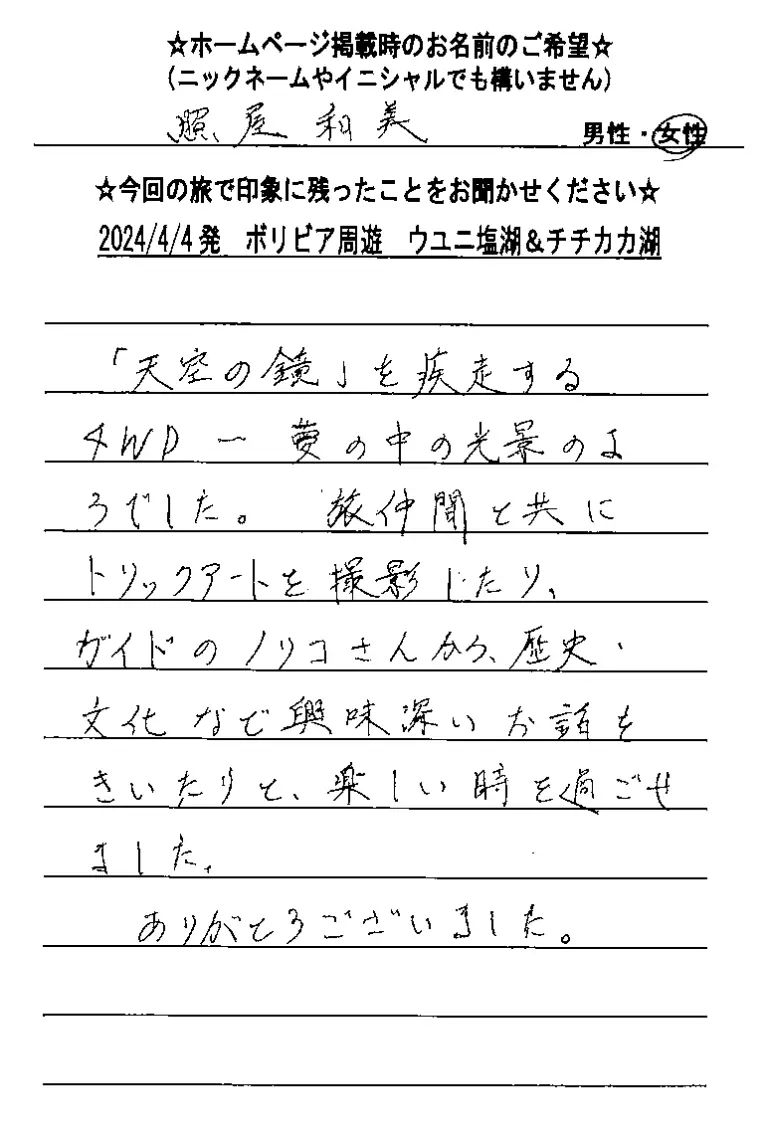 ☆ホームページ掲載時のお名前のご希望☆
(ニックネームやイニシャルでも構いません)
照屋 和美
男性・女性
☆今回の旅で印象に残ったことをお聞かせください☆
2024/4/4発 ボリビア周遊 ウユニ塩湖＆チチカカ湖
「天空の鏡」を疾走する
4WD ー 夢の中の光景のよ
うでした。 旅仲間と共に
トリックアートを撮影したり、
ガイドのノリコさんから、歴史・
文化など興味深いお話を
きいたりと、楽しい時を過ごせ
ました。
ありがとうございました。